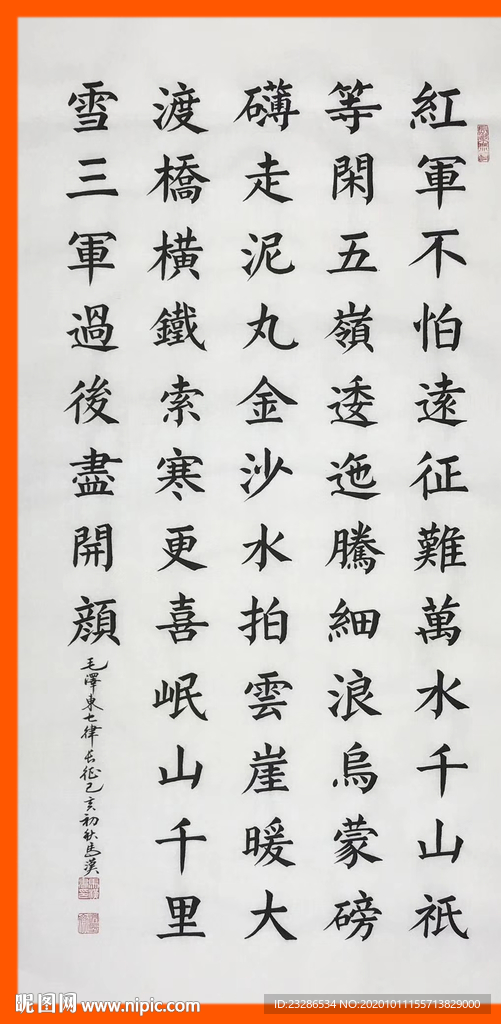 紅軍不怕遠征難萬水千山祇
等閑五嶺逶迤騰細浪烏蒙磅
礴走泥丸金沙水拍雲崖暖大
渡橋橫鐵索寒更喜岷山千里
雪三軍過後盡開顔
毛澤東七律長征己亥初秋馬漢
昵图网 www.nipic.com
ID:23286534 NO:20201011155713829000